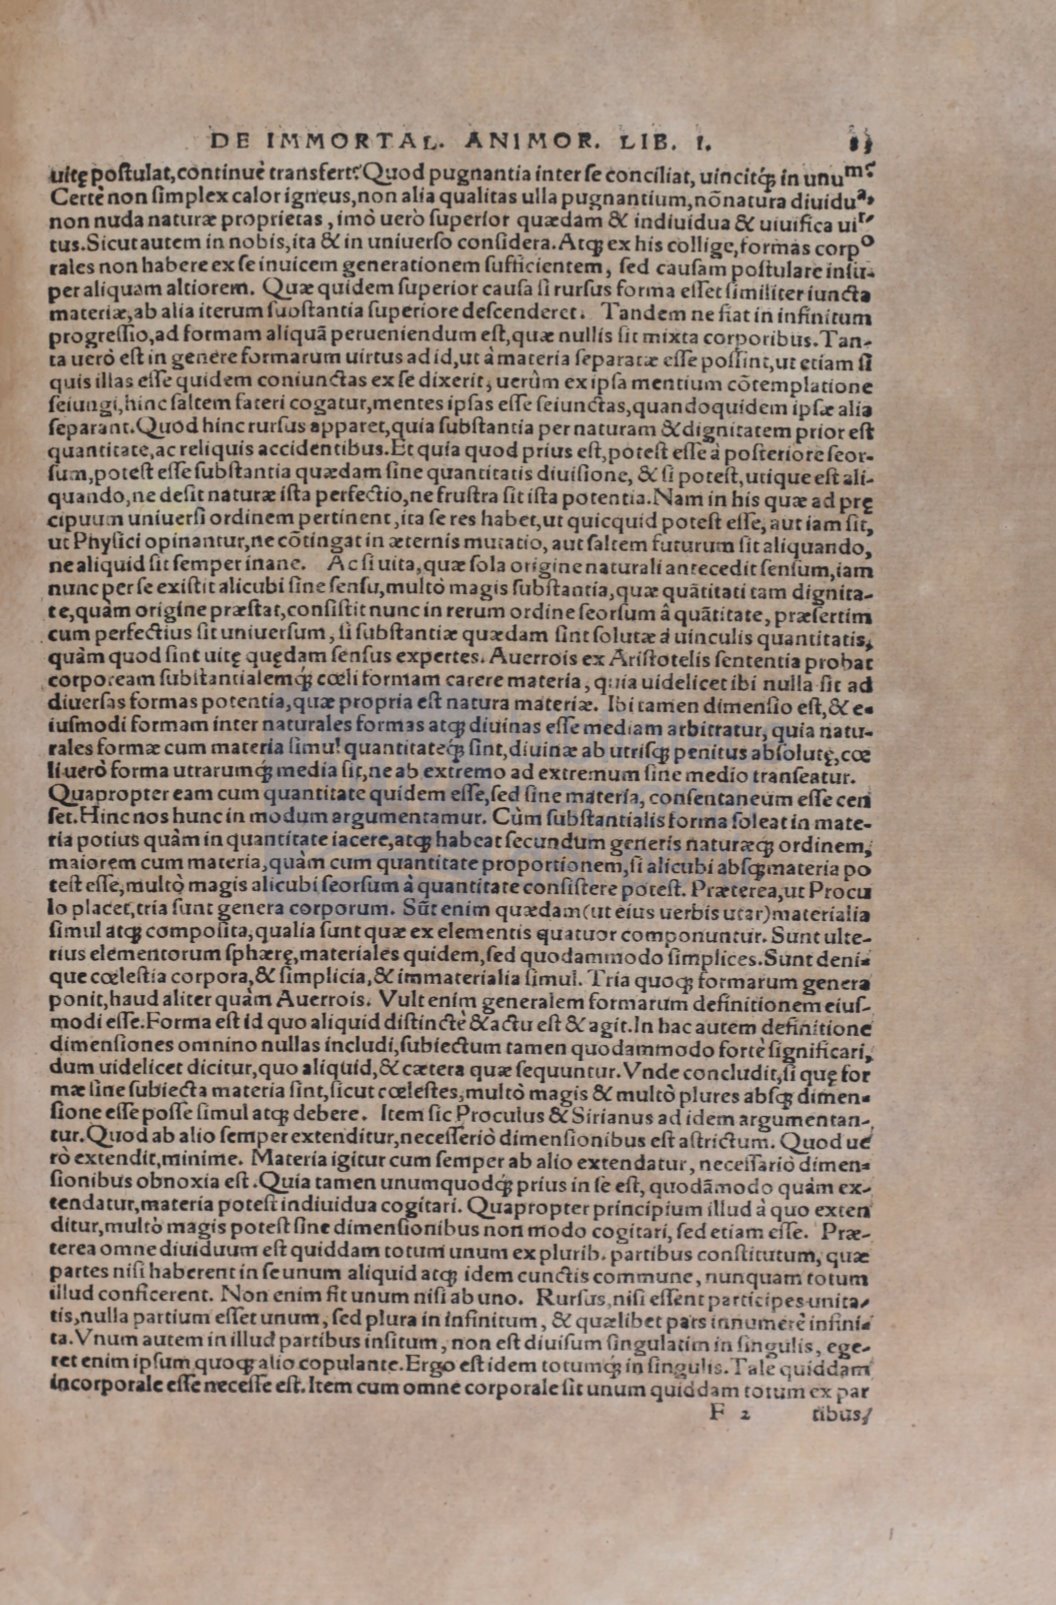 DE IMMORTAL. ANIMOR. LIB. I.
uitę poſtulat, continuè transfert? Quod pugnantia inter ſe conciliat, uincitq́; in unum?
Certè non ſimplex calor igneus, non alia qualitas ulla pugnantium, nõ natura diuidua,
non nuda naturæ proprietas, imò uerò ſuperior quædam & indiuidua & uiuifica uir⸗
tus. Sicut autem in nobis, ita & in uniuerſo conſidera. Atq; ex his collige, formas corpo
rales non habere ex ſe inuicem generationem ſufficientem, ſed cauſam poſtulare inſu⸗
per aliquam altiorem. Quæ quidem ſuperior cauſa ſi rurſus forma eſſet ſimiliter iuncta
materiæ, ab alia iterum ſuoſtantia ſuperiore deſcenderet. Tandem ne fiat in infinitum
progreſſio, ad formam aliquã perueniendum eſt, quæ nullis ſit mixta corporibus. Tan⸗
ta uerò eſt in genere formarum uirtus ad id, ut à materia ſeparatæ eſſe poſſint, ut etiam ſi
quis illas eſſe quidem coniunctas ex ſe dixerit, uerùm ex ipſa mentium cõtemplatione
ſeiungi, hinc ſaltem fateri cogatur, mentes ipſas eſſe ſeiunctas, quandoquidem ipſæ alia
ſeparant. Quod hinc rurſus apparet, quia ſubſtantia per naturam & dignitatem prior eſt
quantitate, ac reliquis accidentibus. Et quia quod prius eſt, poteſt eſſe à poſteriore ſeor⸗
ſum, poteſt eſſe ſubſtantia quædam ſine quantitatis diuiſione, & ſi poteſt, utique eſt ali⸗
quando, ne deſit naturæ iſta perfectio, ne fruſtra ſit iſta potentia. Nam in his quæ ad prę
cipuum uniuerſi ordinem pertinent, ita ſe res habet, ut quicquid poteſt eſſe, aut iam ſit,
ut Phyſici opinantur, ne cõtingat in æternis mutatio, aut ſaltem futurum ſit aliquando,
ne aliquid ſit ſemper inane. Ac ſi uita, quæ ſola origine naturali antecedit ſenſum, iam
nunc per ſe exiſtit alicubi ſine ſenſu, multò magis ſubſtantia, quæ quãtitati tam dignita⸗
te, quàm origine præſtat, conſiſtit nunc in rerum ordine ſeorſum â quãtitate, præſertim
cum perfectius ſit uniuerſum, ſi ſubſtantiæ quædam ſint ſolutæ á uinculis quantitatis,
quàm quod ſint uitę quędam ſenſus expertes. Auerrois ex Ariſtotelis ſententia probat
corpoream ſubſtantialemq́; cœli formam carere materia, quia uidelicet ibi nulla ſit ad
diuerſas formas potentia, quæ propria eſt natura materiæ. Ibi tamen dimenſio eſt, & e⸗
iuſmodi formam inter naturales formas atq; diuinas eſſe mediam arbitratur, quia natu⸗
rales formæ cum materia ſimul quantitateq́; ſint, diuinæ ab utriſq; penitus abſolutę, cœ
li uerò forma utrarumq́; media ſit, ne ab extremo ad extremum ſine medio tranſeatur.
Quapropter eam cum quantitate quidem eſſe, ſed ſine materia, conſentaneum eſſe cen
ſet. Hinc nos hunc in modum argumentamur. Cùm ſubſtantialis forma ſoleat in mate⸗
ria potius quàm in quantitate iacere, atq; habeat ſecundum generis naturæq; ordinem,
maiorem cum materia, quàm cum quantitate proportionem, ſi alicubi abſq; materia po
teſt eſſe, multò magis alicubi ſeorſum à quantitate conſiſtere poteſt. Præterea, ut Procu
lo placet, tria ſunt genera corporum. Sũt enim quædam (ut eius uerbis utar) materialia
ſimul atq; compoſita, qualia ſunt quæ ex elementis quatuor componuntur. Sunt ulte⸗
rius elementorum ſphærę, materiales quidem, ſed quodammodo ſimplices. Sunt deni⸗
que cœleſtia corpora, & ſimplicia, & immaterialia ſimul. Tria quoq; formarum genera
ponit, haud aliter quàm Auerrois. Vult enim generalem formarum definitionem eiuſ⸗
modi eſſe. Forma eſt id quo aliquid diſtinctè & actu eſt & agit. In hac autem definitione
dimenſiones omnino nullas includi, ſubiectum tamen quodammodo fortè ſignificari,
dum uidelicet dicitur, quo aliquid, & cætera quæ ſequuntur. Vnde concludit, ſi quę for
mæ ſine ſubiecta materia ſint, ſicut cœleſtes, multò magis & multò plures abſq; dimen⸗
ſione eſſe poſſe ſimul atq; debere. Item ſic Proculus & Sirianus ad idem argumentan⸗
tur. Quod ab alio ſemper extenditur, neceſſeriò dimenſionibus eſt aſtrictum. Quod ue
rò extendit, minime. Materia igitur cum ſemper ab alio extendatur, neceſſariò dimen⸗
ſionibus obnoxia eſt. Quia tamen unumquodq́; prius in ſe eſt, quodãmodo quàm ex⸗
tendatur, materia poteſt indiuidua cogitari. Quapropter principium illud à quo exten
ditur, multò magis poteſt ſine dimenſionibus non modo cogitari, ſed etiam eſſe. Præ⸗
terea omne diuiduum eſt quiddam totum unum ex plurib. partibus conſtitutum, quæ
partes niſi haberent in ſe unum aliquid atq; idem cunctis commune, nunquam totum
illud conficerent. Non enim fit unum niſi ab uno. Rurſus, niſi eſſent participes unita⸗
tis, nulla partium eſſet unum, ſed plura in infinitum, & quælibet pars innumerè infini⸗
ta. Vnum autem in illud partibus inſitum, non eſt diuiſum ſingulatim in ſingulis, ege⸗
ret enim ipſum quoq; alio copulante. Ergo eſt idem totumq́; in ſingulis. Tale quiddam
incorporale eſſe neceſſe eſt. Item cum omne corporale ſit unum quiddam totum ex par
F 2 tibus,